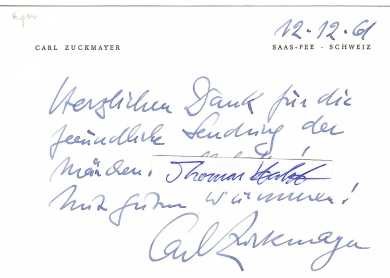 12-12-61
CARL ZUCKMAYER
SAAS-FEE - SCHWEIZ
Herzlichen Dank für die
freundliche Sendung der
Thomas
mit guten Wünschen!
Carl Zuckmayer